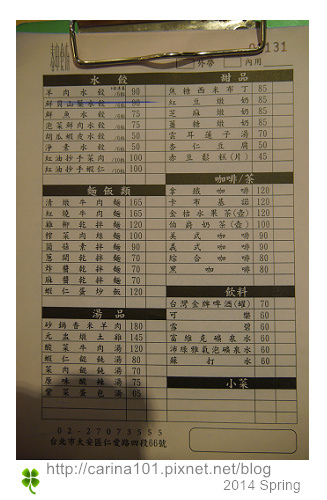 131
外帶 內用
水餃
羊肉水餃 90
鮮貝山藥水餃 90
鮮魚水餃 75
泡菜鮮肉水餃 75
胡瓜蝦皮水餃 50
淨素水餃 50
紅油抄手菜肉 100
紅油抄手蝦仁 100
麵飯類
清燉牛肉麵 165
紅燒牛肉麵 165
雞柳乾拌麵 120
榨菜肉絲麵 100
菇素拌麵 90
蔥開乾拌麵 70
炸醬乾拌麵 70
麻醬乾拌麵 70
蝦仁蛋炒飯 120
湯品
砂鍋香米羊肉 180
元盅燉土雞 145
酸菜牛肉湯 120
蝦仁餛飩湯 80
菜肉餛飩湯 70
原味酸辣湯 75
紫菜蛋包湯 65
甜品
焦糖西米布丁 85
紅豆燉奶 85
芝麻燉奶 85
薑糖燉奶 85
雲耳蓮子湯 70
杏仁豆腐 50
赤豆鬆糕(片) 45
咖啡/茶
拿鐵咖啡 120
卡布基諾 120
金桔水果茶(壺) 120
伯爵奶茶(壺) 100
美式咖啡 90
義式咖啡 90
綜合咖啡 80
黑咖啡 80
飲料
台灣金牌啤酒(罐) 70
可樂 60
雪碧 60
富維克礦泉水 60
沛綠雅氣泡礦泉水 60
蘇打水 60
小菜
02-27073555
台北市大安區仁愛路四段66號
http://carina101.pixnet.net/blog
2014 Spring